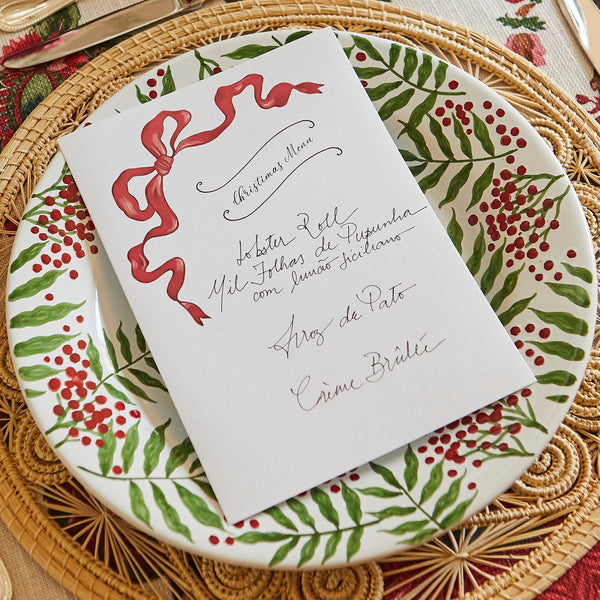 Christmas Menu
Lobster Roll
Mil Folhas de Pupunha
com limão siciliano
Arroz de Pato
Crème Brûlée